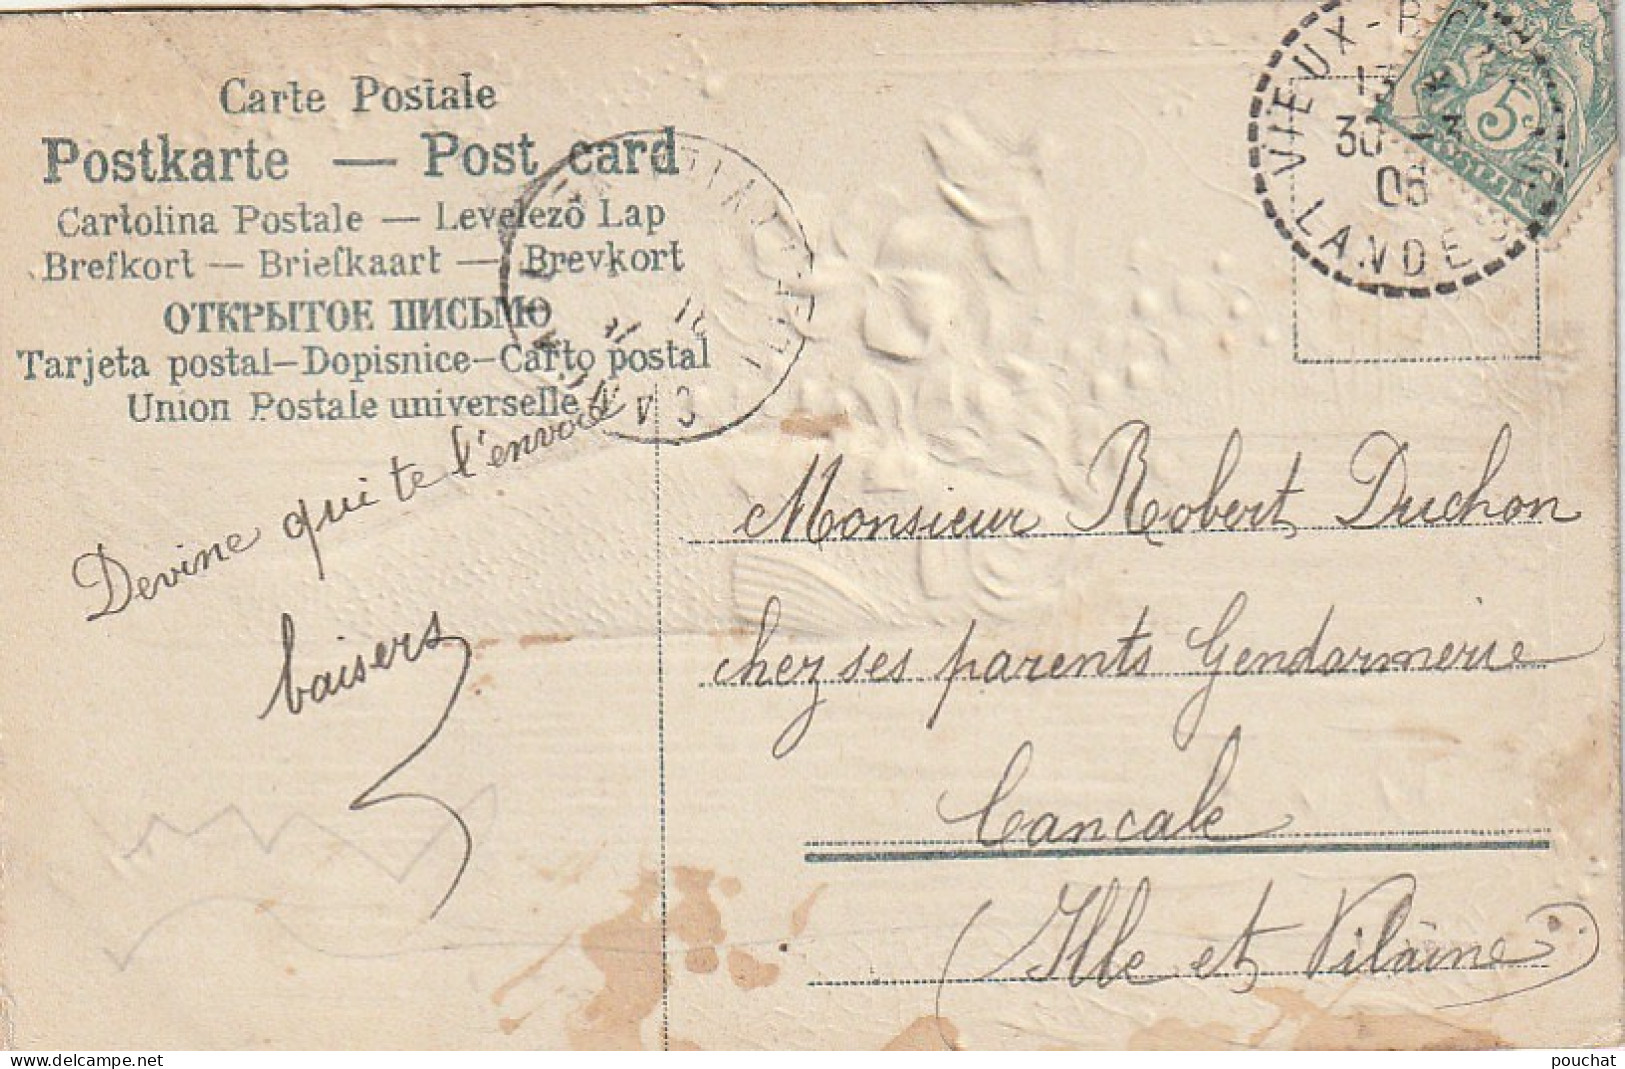 Carte Postale
Postkarte — Post card
Cartolina Postale — Levelező Lap
Brefkort — Briefkaart — Brevkort
ОТКРЫТОЕ ПИСЬМО
Tarjeta postal–Dopisnice–Carto postal
Union Postale universelle
Devine qui te l'envoie
baisers
VIEUX-B
13
30
3
06
LANDE
5c
POSTES
Monsieur Robert Duchon
chez ses parents Gendarmerie
Cancale
(Ille et Vilaine)
delcampe.net
pouchat